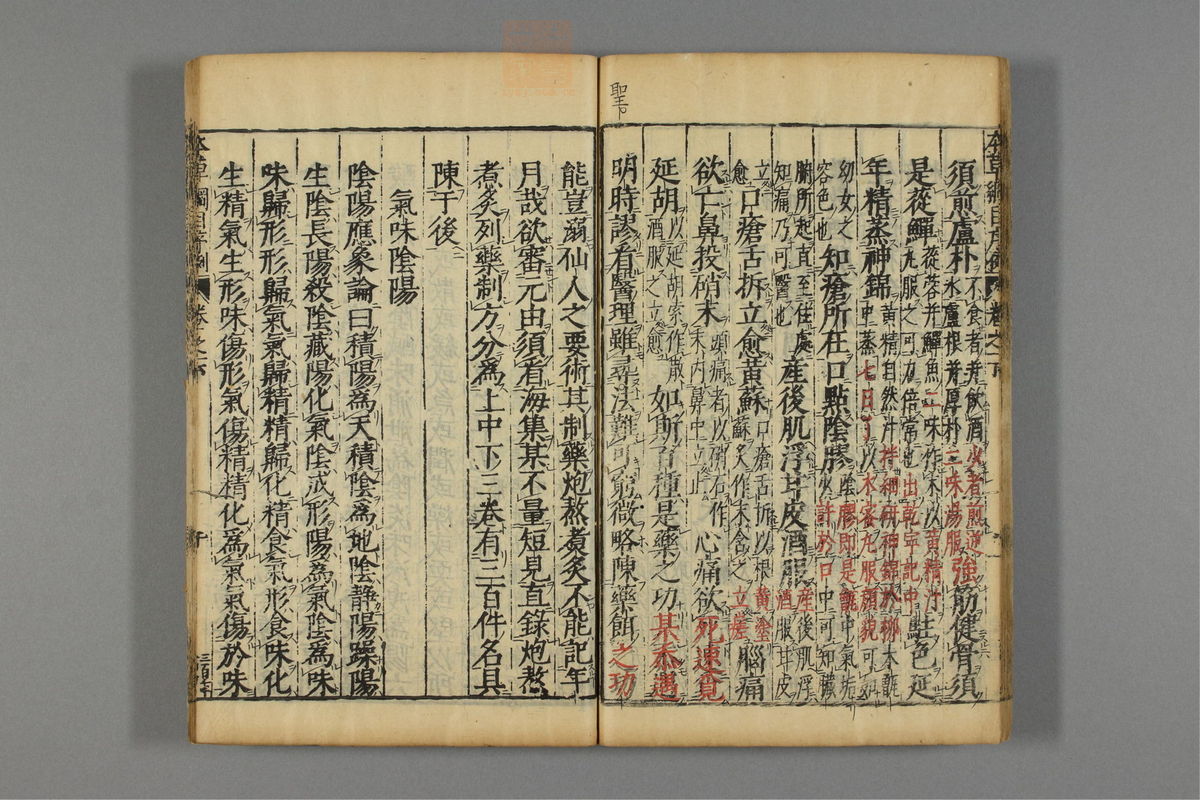 聖
須煎盧朴 不食者并飲酒少者煎逆
水盧根并厚朴二味湯服 強筋健骨須
是蓯鱓 蓯蓉并鱓魚二味作末以黃精汁
丸服之可力倍常也出乾寧記中 駐色延
年精蒸神錦 黃精自然汁拌細研神錦於柳木甑
中蒸七日了以木蜜丸服顏貌可如
幼女之
容色也 知瘡所在口點陰膠 陰膠即是甑中氣垢
少許於口中可知臟
腑所起直至住處
知痛乃可醫也 產後肌浮甘皮酒服 產後肌浮
酒服甘皮
立愈 口瘡舌拆立愈黃蘇 口瘡舌拆以根黃塗
蘇炙作末含之立瘥 腦痛
欲亡鼻投硝末 頭痛者以硝石作
末內鼻中立止 心痛欲死速覓
延胡 以延胡索作散
酒服之立愈 如斯百種是藥之功某忝遇
明時謬看醫理雖尋法難可窮微略陳藥餌之功
能豈溺仙人之要術其制藥炮熬煮炙不能記年
月哉欲審元由須看海集某不量短見直錄炮熬
煮炙列藥制方分為上中下三卷有三百件名具
陳于後
氣味陰陽
陰陽應象論曰積陽為天積陰為地陰靜陽躁陽
生陰長陽殺陰藏陽化氣陰成形陽為氣陰為味
味歸形形歸氣氣歸精精歸化精食氣形食味化
生精氣生形味傷形氣傷精精化為氣氣傷於味
本草綱目序例 卷之一